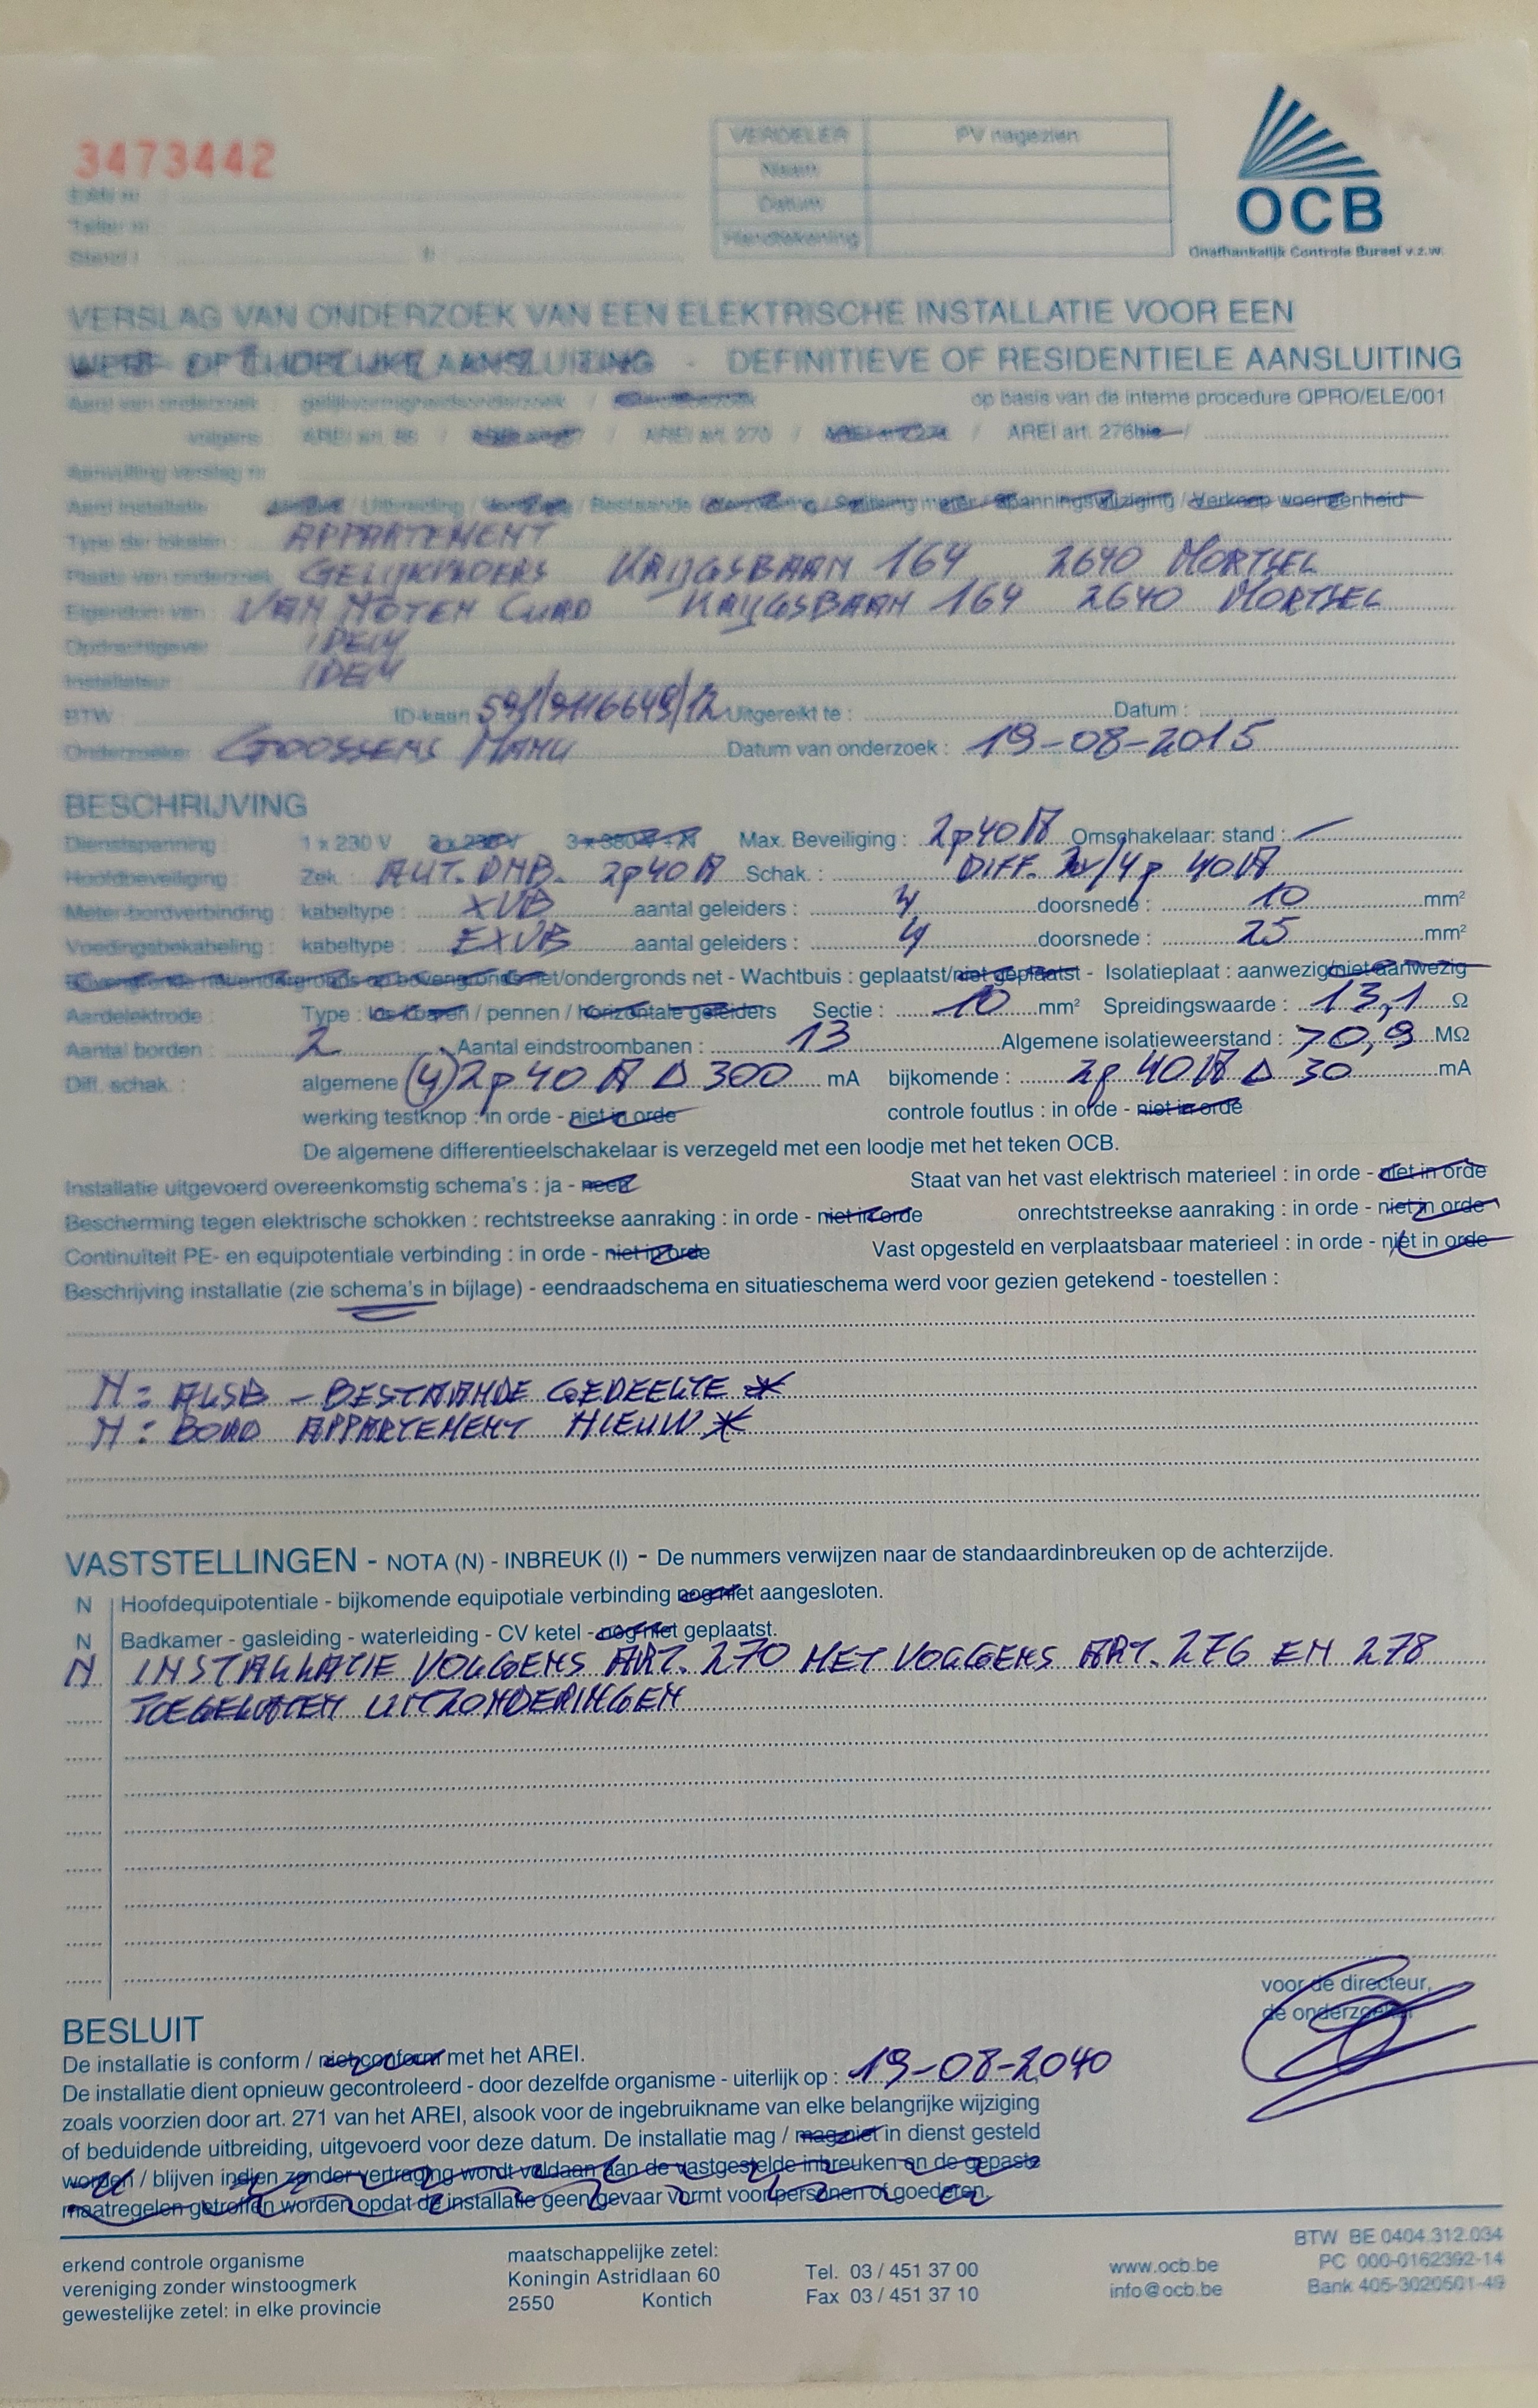 3473442
EAN nr
Teller nr
Stand I II
VERDELER PV nagezien
Naam
Datum
Handtekening
OCB
Onafhankelijk Controle Bureel v.z.w.
VERSLAG VAN ONDERZOEK VAN EEN ELEKTRISCHE INSTALLATIE VOOR EEN
WERF- OF TIJDELIJKE AANSLUITING - DEFINITIEVE OF RESIDENTIELE AANSLUITING
Aard van onderzoek : gelijkvormigheidsonderzoek / op basis van de interne procedure QPRO/ELE/001
volgens : AREI art. 86 / / AREI art. 270 / AREI art. 271 / AREI art. 276bis /
Aanvulling verslag nr
Aard installatie : / Uitbreiding / / Bestaande / / Splitsing meter / Spanningswijziging / Verkoop wooneenheid
Type der lokalen : APPARTEMENT
Plaats van onderzoek GELIJKVLOERS KRIJGSBAAN 164 2640 MORTSEL
Eigendom van : VAN KRIJGSBAAN 164 2640 MORTSEL
Opdrachtgever IDEM
Installateur IDEM
BTW ID-kaart Uitgereikt te : Datum :
Onderzoeker GOOSSENS MANU Datum van onderzoek : 19-08-2015
BESCHRIJVING
Dienstspanning : 1 x 230 V 3 x 230 V 3 x 380 V + N Max. Beveiliging : 2p 40 A Omschakelaar: stand : /
Hoofdbeveiliging : Zek. AUT. OMB. 2p 40 A Schak. : DIFF. /4p 40 A
Meter-bordverbinding : kabeltype : XVB aantal geleiders : 4 doorsnede : 10 mm²
Voedingsbekabeling : kabeltype : EXVB aantal geleiders : 4 doorsnede : 25 mm²
net/ondergronds net - Wachtbuis : geplaatst/niet geplaatst - Isolatieplaat : aanwezig/niet aanwezig
Aardelektrode : Type : / pennen / horizontale geleiders Sectie : 10 mm² Spreidingswaarde : 13,1 Ω
Aantal borden : 2 Aantal eindstroombanen : 13 Algemene isolatieweerstand : 70,9 MΩ
Diff. schak. : algemene (4) 2p 40 A Δ 300 mA bijkomende : 2p 40 A Δ 30 mA
werking testknop : in orde - niet in orde controle foutlus : in orde - niet in orde
De algemene differentieelschakelaar is verzegeld met een loodje met het teken OCB.
Installatie uitgevoerd overeenkomstig schema's : ja - neen Staat van het vast elektrisch materieel : in orde - niet in orde
Bescherming tegen elektrische schokken : rechtstreekse aanraking : in orde - niet in orde onrechtstreekse aanraking : in orde - niet in orde
Continuïteit PE- en equipotentiale verbinding : in orde - niet in orde Vast opgesteld en verplaatsbaar materieel : in orde - niet in orde
Beschrijving installatie (zie schema's in bijlage) - eendraadschema en situatieschema werd voor gezien getekend - toestellen :
N = ALSB - BESTAANDE GEDEELTE *
N : BORD APPARTEMENT NIEUW *
VASTSTELLINGEN - NOTA (N) - INBREUK (I) - De nummers verwijzen naar de standaardinbreuken op de achterzijde.
N Hoofdequipotentiale - bijkomende equipotiale verbinding nog niet aangesloten.
N Badkamer - gasleiding - waterleiding - CV ketel - nog niet geplaatst.
N INSTALLATIE VOLGENS ART. 270 MET VOLGENS ART. 276 EN 278
TOEGELATEN UITZONDERINGEN
voor de directeur,
de onderzoeker
BESLUIT
De installatie is conform / niet conform met het AREI.
De installatie dient opnieuw gecontroleerd - door dezelfde organisme - uiterlijk op : 19-08-2040
zoals voorzien door art. 271 van het AREI, alsook voor de ingebruikname van elke belangrijke wijziging
of beduidende uitbreiding, uitgevoerd voor deze datum. De installatie mag / mag niet in dienst gesteld
worden / blijven indien zonder vertraging wordt voldaan aan de vastgestelde inbreuken en de gepaste
maatregelen getroffen worden opdat de installatie geen gevaar vormt voor personen of goederen.
erkend controle organisme
vereniging zonder winstoogmerk
gewestelijke zetel: in elke provincie
maatschappelijke zetel:
Koningin Astridlaan 60
2550 Kontich
Tel. 03 / 451 37 00
Fax 03 / 451 37 10
www.ocb.be
info@ocb.be
BTW BE 0404.312.034
PC 000-0162392-14
Bank 405-3020501-49